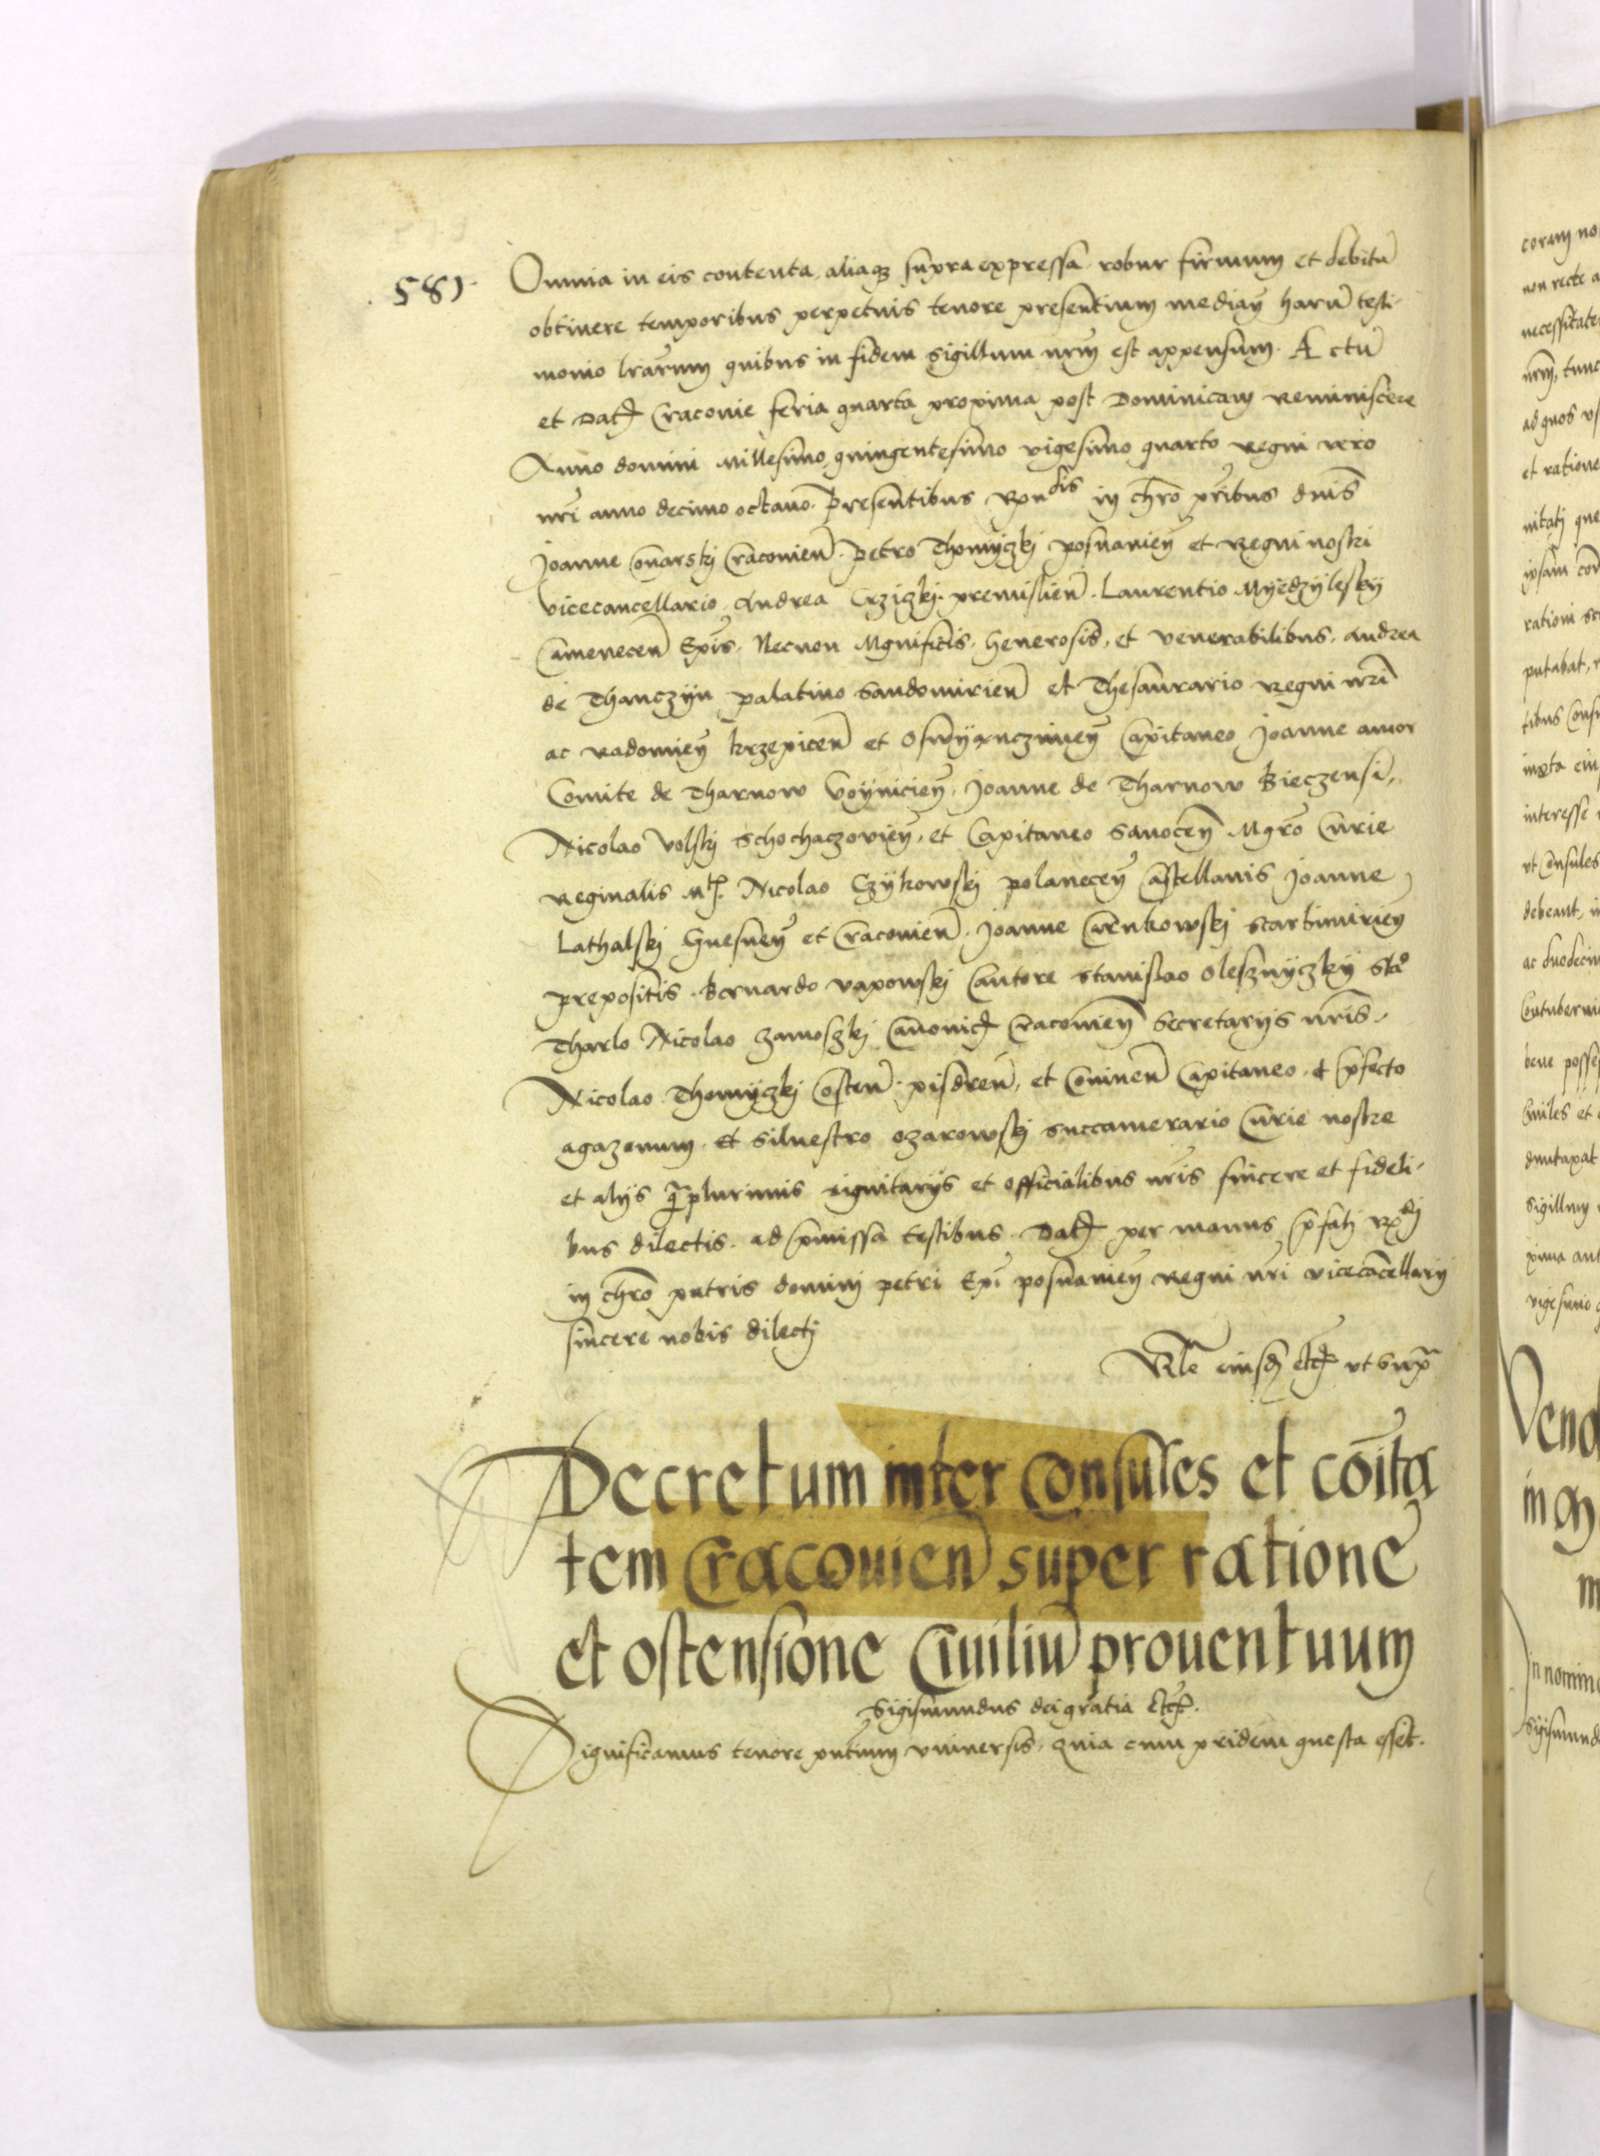 581
Omnia in eis contenta aliaqz supra expressa robur firmum et debitũ
obtinere temporibus perpetuis tenore presentium median̄ harũ testi-
monio lrarum quibus in fidem sigillum nrm̄ est appensum. Actũ
et Dat Cracovie feria quarta proxima post Dominicam Reminiscere
Anno domini Millesimo quingentesimo vigesimo quarto regni vero
nri anno decimo octavo. Presentibus Rndis in chro pribus dnis
Joanne Conarskj Cracovien̄. Petro Thomyczkj posnanien̄ et Regni nostri
vicecancellario. Andrea Crziczkj premislien̄. Laurentio Myedzyleskij
Camenecen̄ Epis. Necnon Mgnificis. Generosis, et venerabilibus. Andrea
de Thanczyn palatino Sandomirien̄ et Thesaurario Regni nri
ac Radomien̄ krzepicen̄ et Osvyanczimen̄ Capitaneo Joanne amor
Comite de Tharnow Voynicien̄. Joanne de Tharnow Bieczensi,
Nicolao Volskj Schochaczovien̄, et Capitaneo Sanocen̄ Mgro Curie
Reginalis Mtis. Nicolao Czykowskj polanecen̄ Castellanis Joanne
Lathalskj Gnesnen̄ et Cracovien̄. Joanne Carnkowskj Scarbimirien̄
prepositis. Bernardo Vapowskj Cantore Stanislao Olesznyczkij Stao
Tharlo Nicolao Zamoszkj Canonicis Cracovien̄ Secretarijs nris.
Nicolao Thomyczkj Costen̄. pisdren̄. et Coninen̄ Capitaneo. et pfecto
agazonum. et Siluestro Ozarowskj succamerario Curie nostre
et alijs qplurimis dignitarijs et officialibus nris sincere et fideli-
bus dilectis. ad pmissa testibus. Dat per manus pfatj Rndj
in chro patris dominj petri Epi posnanien̄ Regni nri vicecancellarij
sincere nobis dilectj
Rlo eiusdem etc ut supra
Decretum inter Consules et cõita
tem Cracovien̄ super ratione
et ostensione Ciuiliũ prouentuum
Sigismundus dei gratia etc.
Significamus tenore pntium vniuersis. quia cum pridem questa esset.